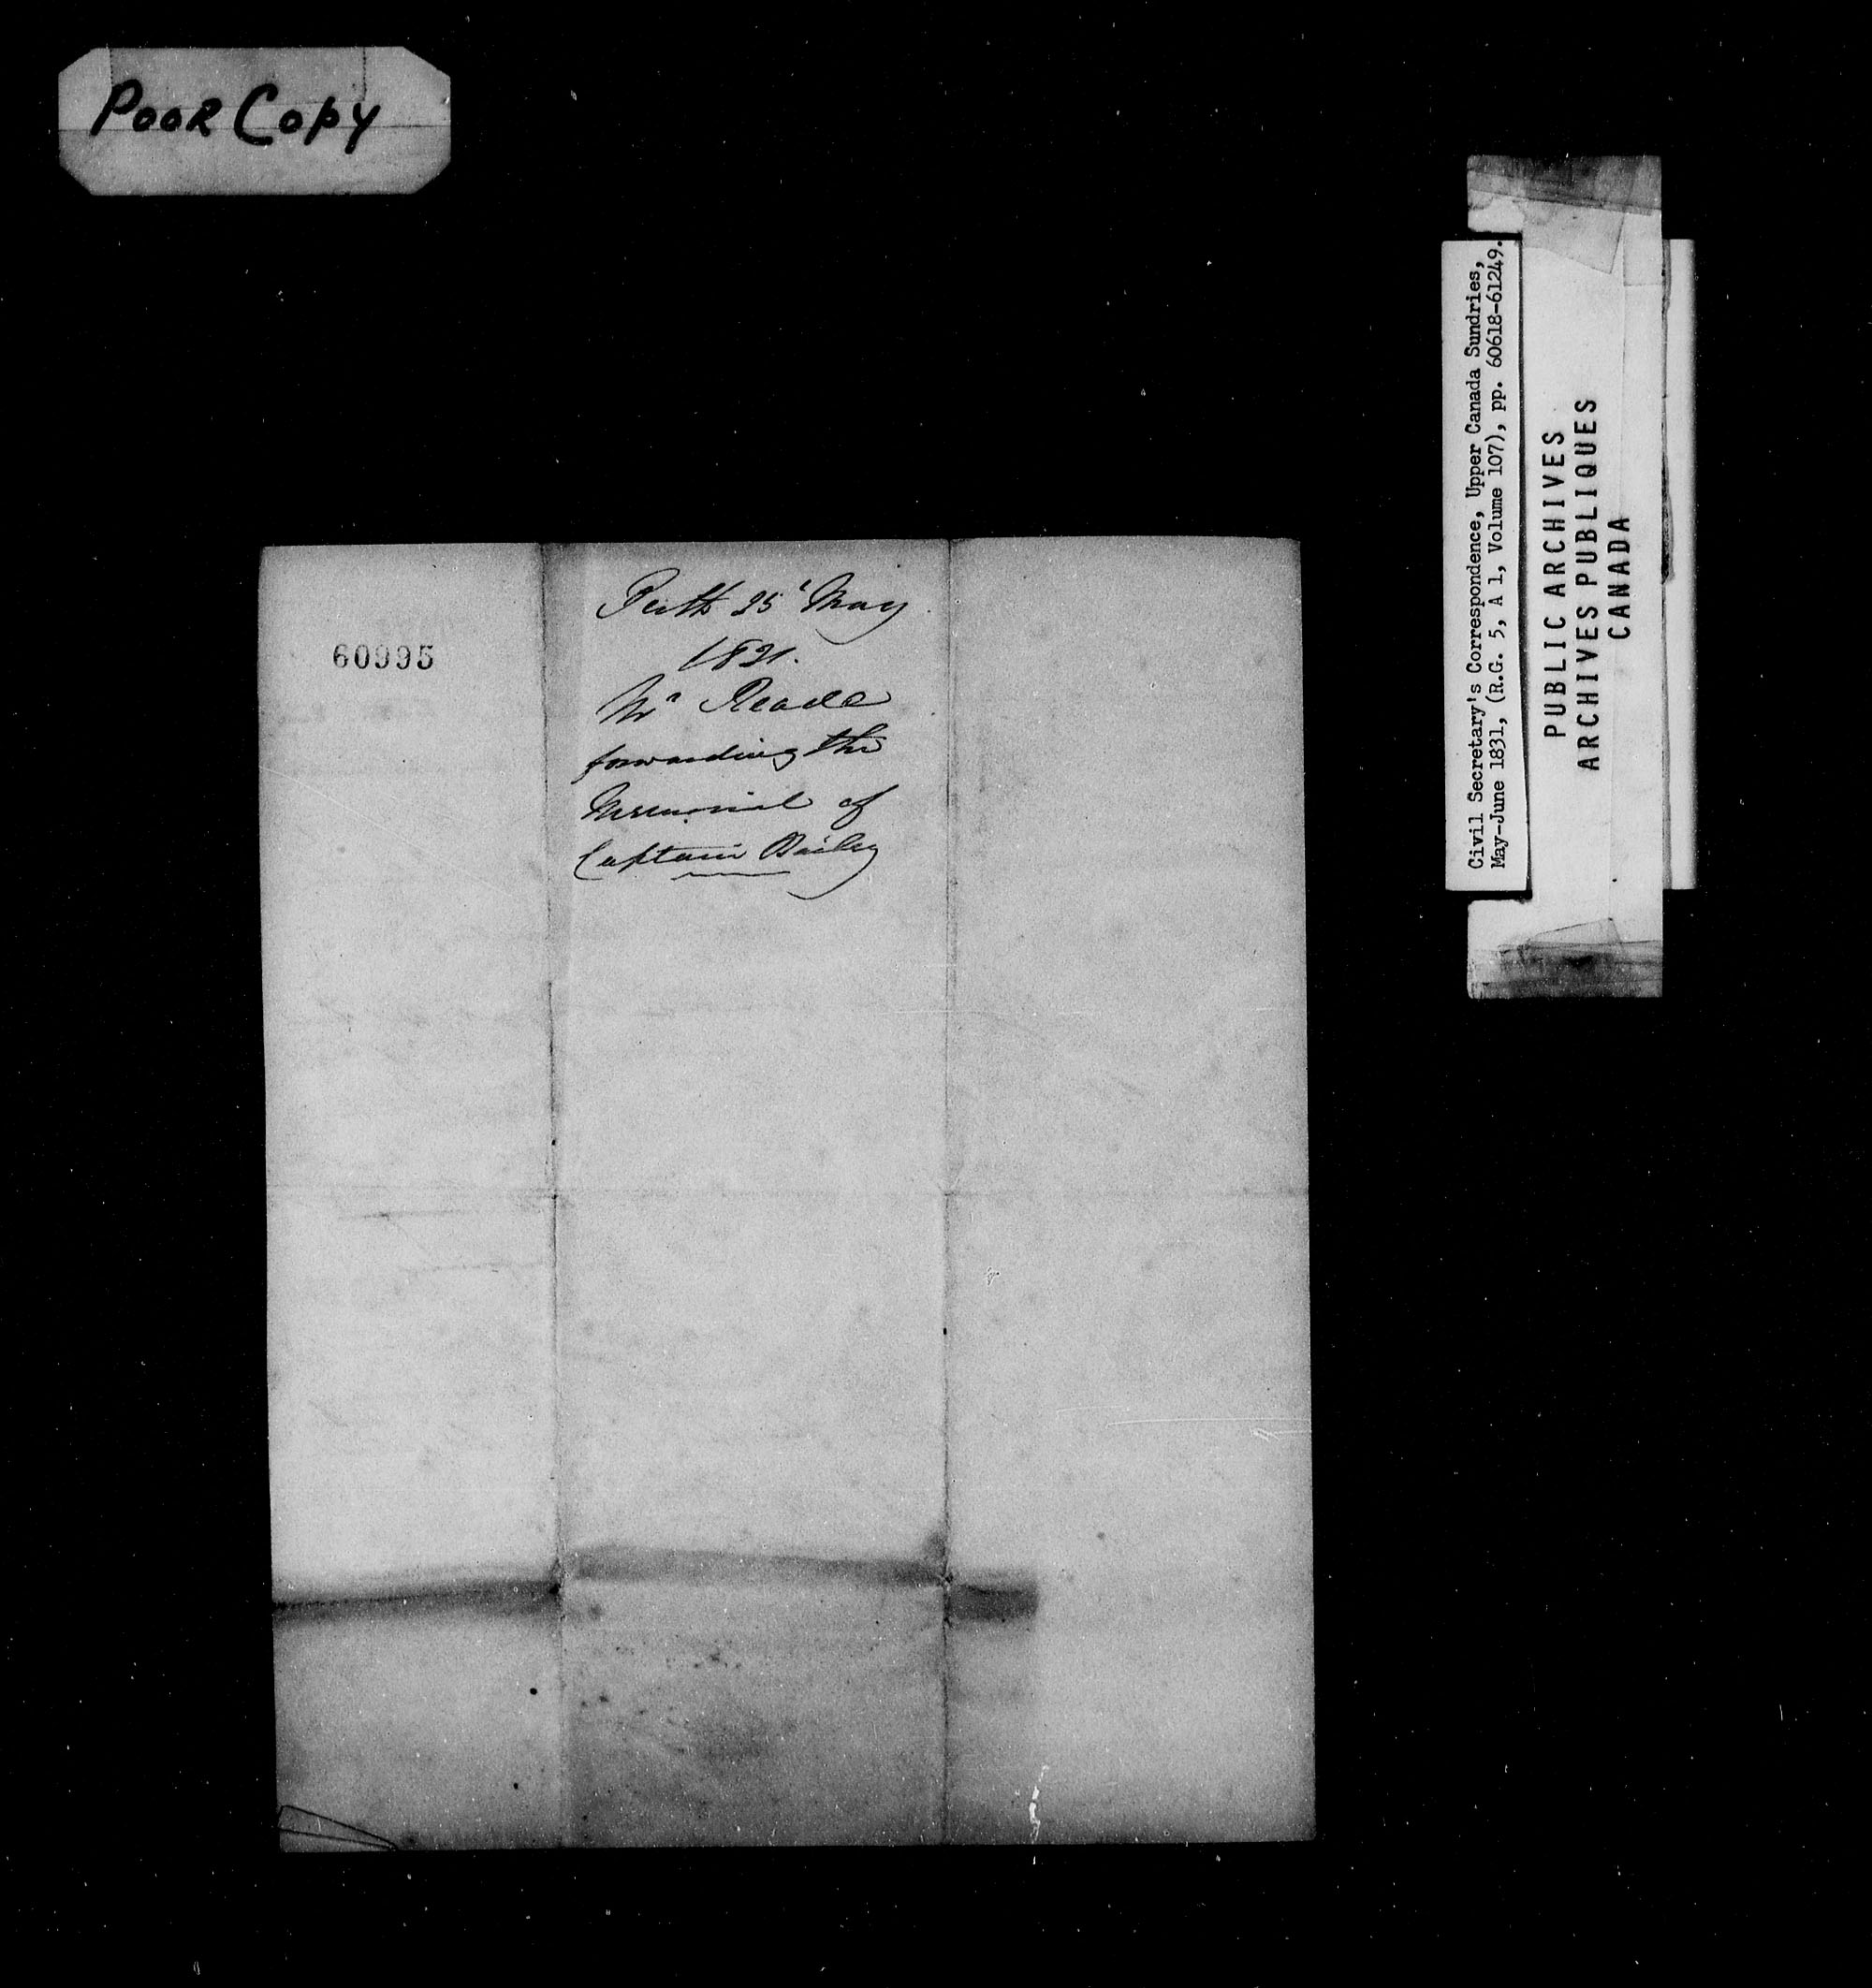 Poor Copy
60995
Perth 25 May
1831.
Mr Reade
forwarding the
Memorial of
Captain Bailey
Civil Secretary's Correspondence, Upper Canada Sundries,
May-June 1831, (R.G. 5, A 1, Volume 107), pp. 60618-61249.
PUBLIC ARCHIVES
ARCHIVES PUBLIQUES
CANADA